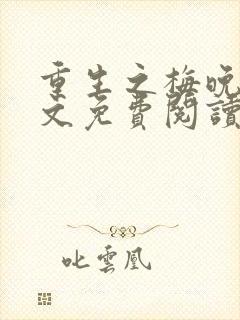 重生之梅晚
文免費閱讀
叱雲凰